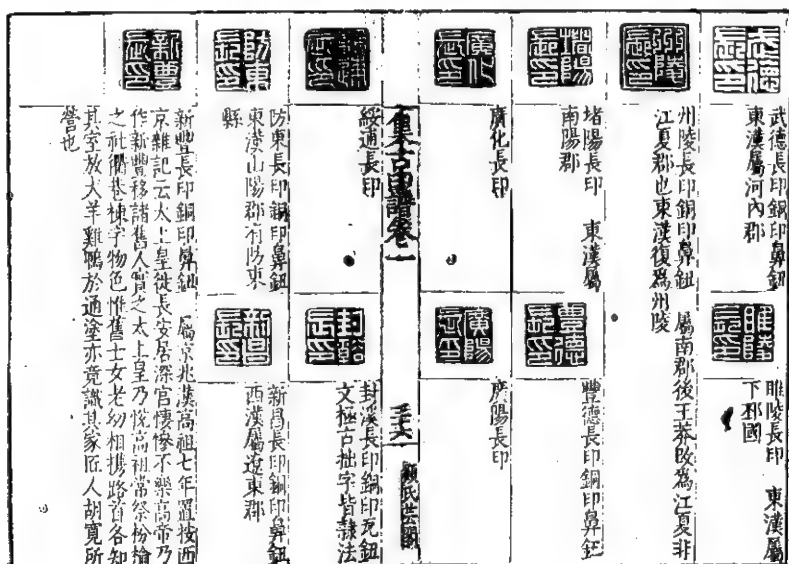 武德長印
武德長印銅印鼻鈕
東漢屬河內郡
睢陵長印
睢陵長印 東漢屬
下邳國
州陵長印
州陵長印銅印鼻鈕 屬南郡後王莽改爲江夏非
江夏郡也東漢復爲州陵
堵陽長印
堵陽長印 東漢屬
南陽郡
豐德長印
豐德長印銅印鼻鈕
廣化長印
廣化長印
廣陽長印
廣陽長印
集古印譜卷一
三十六
顧氏芸閣
綏通長印
綏通長印
封谿長印
封溪長印銅印瓦鈕
文極古拙字皆隷法
防東長印
防東長印銅印鼻鈕
東漢山陽郡有防東
縣
新昌長印
新昌長印銅印鼻鈕
西漢屬遼東郡
新豐長印
新豐長印銅印鼻鈕 屬京兆漢高祖七年置按西
京雜記云太上皇徙長安居深宮悽慘不樂高帝乃
作新豐移諸舊人實之太上皇乃悅高祖常祭枌榆
之社衢巷棟宇物色惟舊士女老幼相携路首各知
其室放犬羊雞鴨於通塗亦竟識其家匠人胡寬所
營也